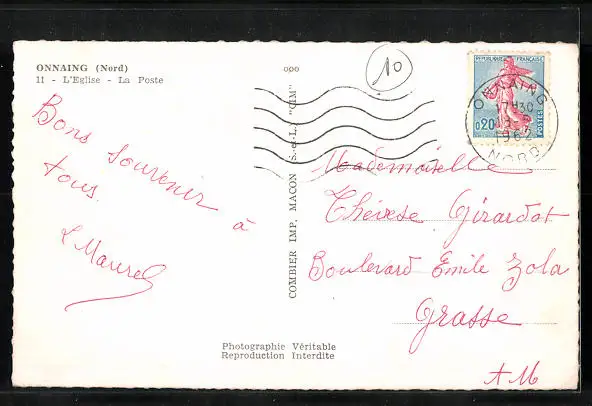 ONNAING (Nord)
11 - L'Eglise - La Poste
Bons souvenir à
tous
L Maurel
ooo
COMBIER IMP. MACON (S.-et-L.) "CIM"
10
REPUBLIQUE FRANÇAISE
0,20
POSTES
ONNAING
17H30
1962
NORD
Mademoiselle
Thérèse Girardot
Boulevard Emile Zola
Grasse
AM
Photographie Véritable
Reproduction Interdite